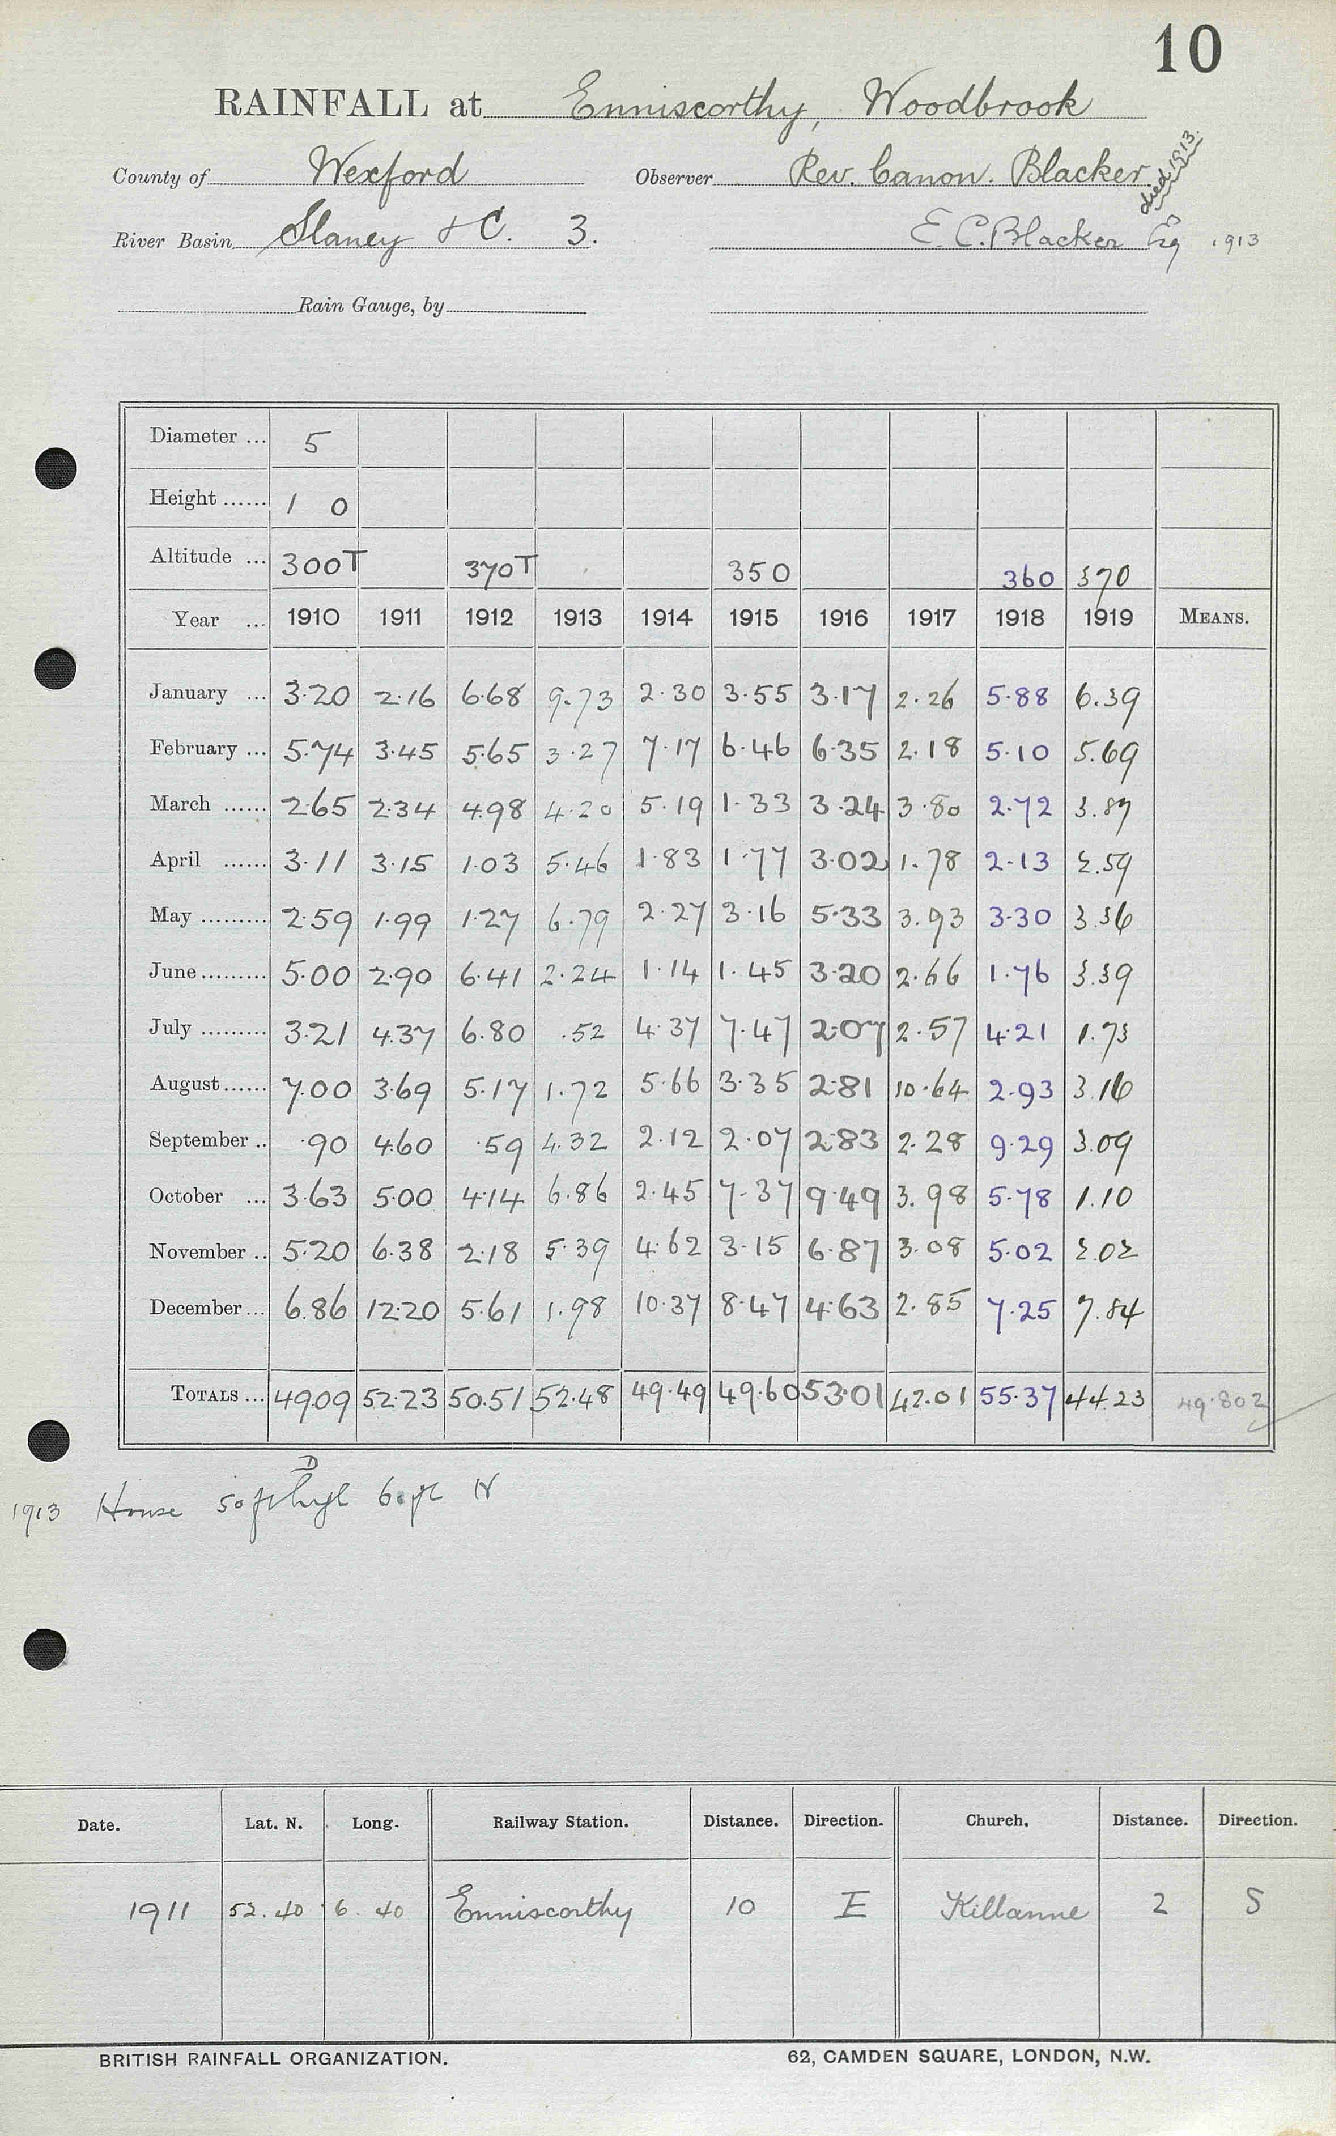 10
RAINFALL at Enniscorthy, Woodbrook
County of Wexford Observer Rev. Canon. Blacker died 1913.
River Basin Slaney & C. 3. E. C. Blacker Esq 1913
Rain Gauge, by
Diameter ... 5
Height ...... 1 0
Altitude ... 300T 370T 350 360 370
Year ... 1910 1911 1912 1913 1914 1915 1916 1917 1918 1919 MEANS.
January ... 3.20 2.16 6.68 9.73 2.30 3.55 3.17 2.26 5.88 6.39
February ... 5.74 3.45 5.65 3.27 7.17 6.46 6.35 2.18 5.10 5.69
March ...... 2.65 2.34 4.98 4.20 5.19 1.33 3.24 3.80 2.72 3.87
April ...... 3.11 3.15 1.03 5.46 1.83 1.77 3.02 1.78 2.13 2.59
May ......... 2.59 1.99 1.27 6.79 2.27 3.16 5.33 3.93 3.30 3.36
June ......... 5.00 2.90 6.41 2.24 1.14 1.45 3.20 2.66 1.76 3.39
July ......... 3.21 4.37 6.80 .52 4.37 7.47 2.07 2.57 4.21 1.73
August ...... 7.00 3.69 5.17 1.72 5.66 3.35 2.81 10.64 2.93 3.16
September .. .90 4.60 .59 4.32 2.12 2.07 2.83 2.28 9.29 3.09
October ... 3.63 5.00 4.14 6.86 2.45 7.37 9.49 3.98 5.78 1.10
November .. 5.20 6.38 2.18 5.39 4.62 3.15 6.87 3.08 5.02 2.02
December ... 6.86 12.20 5.61 1.98 10.37 8.47 4.63 2.85 7.25 7.84
TOTALS ... 49.09 52.23 50.51 52.48 49.49 49.60 53.01 42.01 55.37 44.23 49.802
1913 House 50 ft N
Date. Lat. N. Long. Railway Station. Distance. Direction. Church. Distance. Direction.
1911 52.40 6 40 Enniscorthy 10 E Killanne 2 S
BRITISH RAINFALL ORGANIZATION. 62, CAMDEN SQUARE, LONDON, N.W.